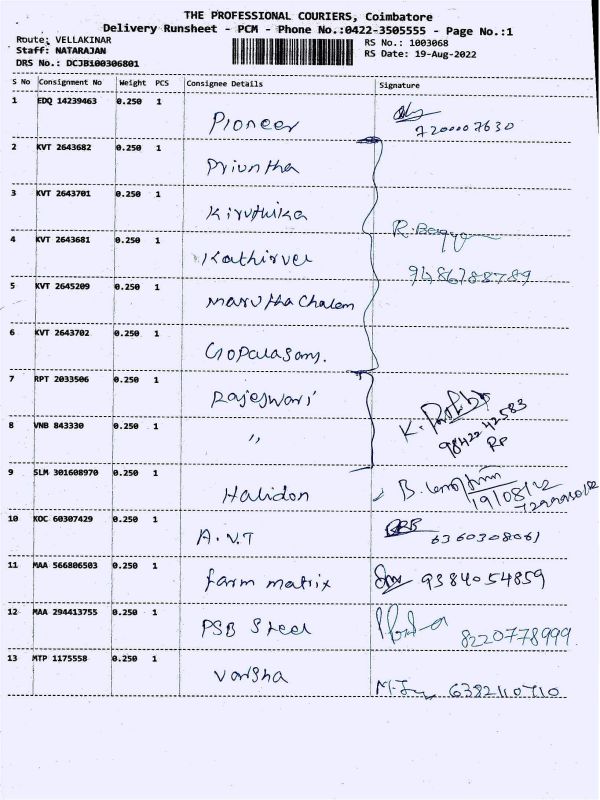 THE PROFESSIONAL COURIERS, Coimbatore
Delivery Runsheet - PCM - Phone No.:0422-3505555 - Page No.:1
Route: VELLAKINAR
RS No.: 1003068
Staff: NATARAJAN
RS Date: 19-Aug-2022
DRS No.: DCJB100306801
S No Consignment No Weight PCS Consignee Details Signature
1 EDQ 14239463 0.250 1
Pioneer 7200007630
2 KVT 2643682 0.250 1
Priuntha
3 KVT 2643701 0.250 1
Kiruthika
4 KVT 2643681 0.250 1
Kathirvel
5 KVT 2645209 0.250 1
Marutha Chalem
6 KVT 2643702 0.250 1
Gopalasamy.
7 RPT 2033506 0.250 1
Rajeswari
8 VNB 843330 0.250 1
" 98422 42583
RP
9 SLM 301608970 0.250 1
Halidon 19/08/22
10 KOC 60307429 0.250 1
A.V.T 6360308061
11 MAA 566806503 0.250 1
farm matrix 9384054859
12 MAA 294413755 0.250 1
PSB Steel 8220778999
13 MTP 1175558 0.250 1
Varsha 6382110710